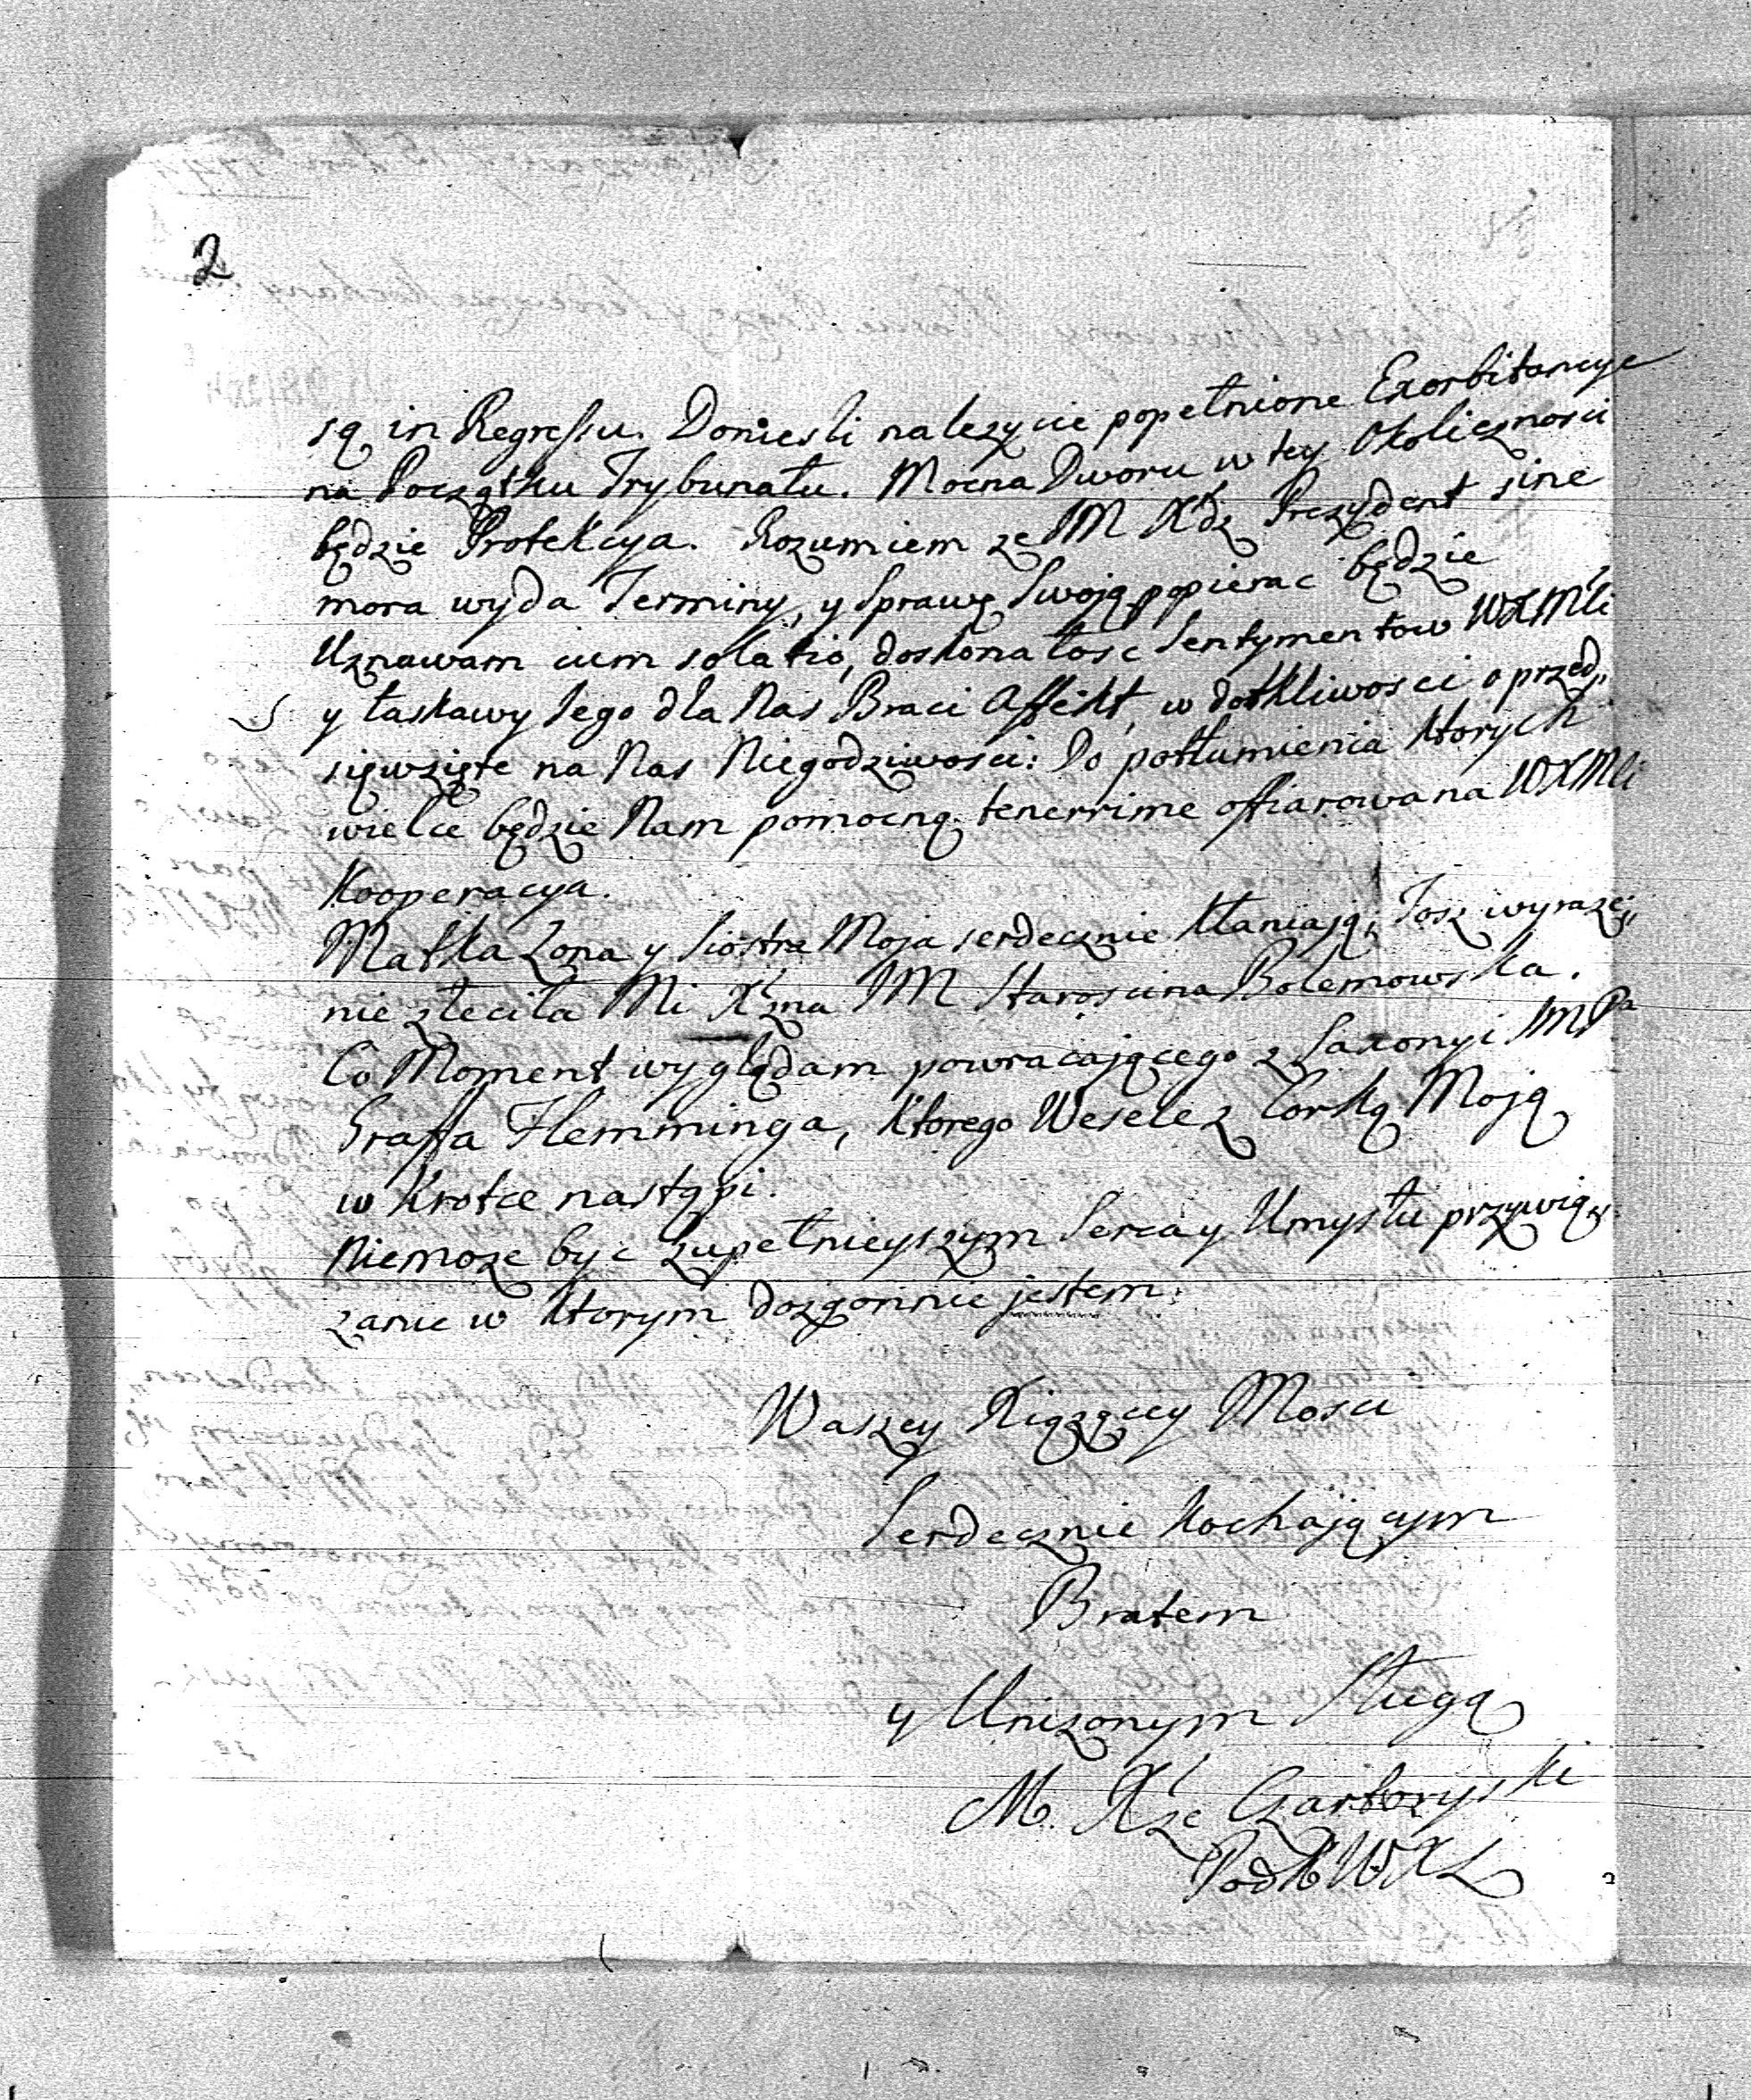 2
są in Regressu. Doniesli nalezycie popełnione Exorbitancye
na Początku Trybunału. Mocna Dworu w tey Okolicznosci
będzie Protekcya. Rozumiem ze JM Xdz Prezydent sine
mora wyda Terminy, y Sprawę Swoją popierac będzie
Uznawam cum solatio, doskonałosc Sentymentow WXMci
y łaskawy Jego dla Nas Braci Affekt, w dotkliwosci o przed„
sięwzięte na Nas Niegodziwosci: Do potłumienia ktorych
wielce będzie Nam pomocną tenerrime offiarowana WXMci
Kooperacya.
Matka Zona y Siostra Moja serdecznie kłaniają, Tosz wyraze„
nie zleciła Mi Xzna JM Starosцina Bolemowska.
Co Moment wyglądam powracającego z Saxonyi JMPa
Graffa Flemminga, ktorego Wesele z Corką Moją
w krotce nastąpi.
Niemoze byc zupełnieyszym Serca y Umysłu przywią„
zanie w ktorym dozgonnie jestem.
Waszey Xiązęcey Mosci
Serdecznie kochającym
Bratem
y Unizonym Sługą
M. Xże Czartoryski
PodK WXL